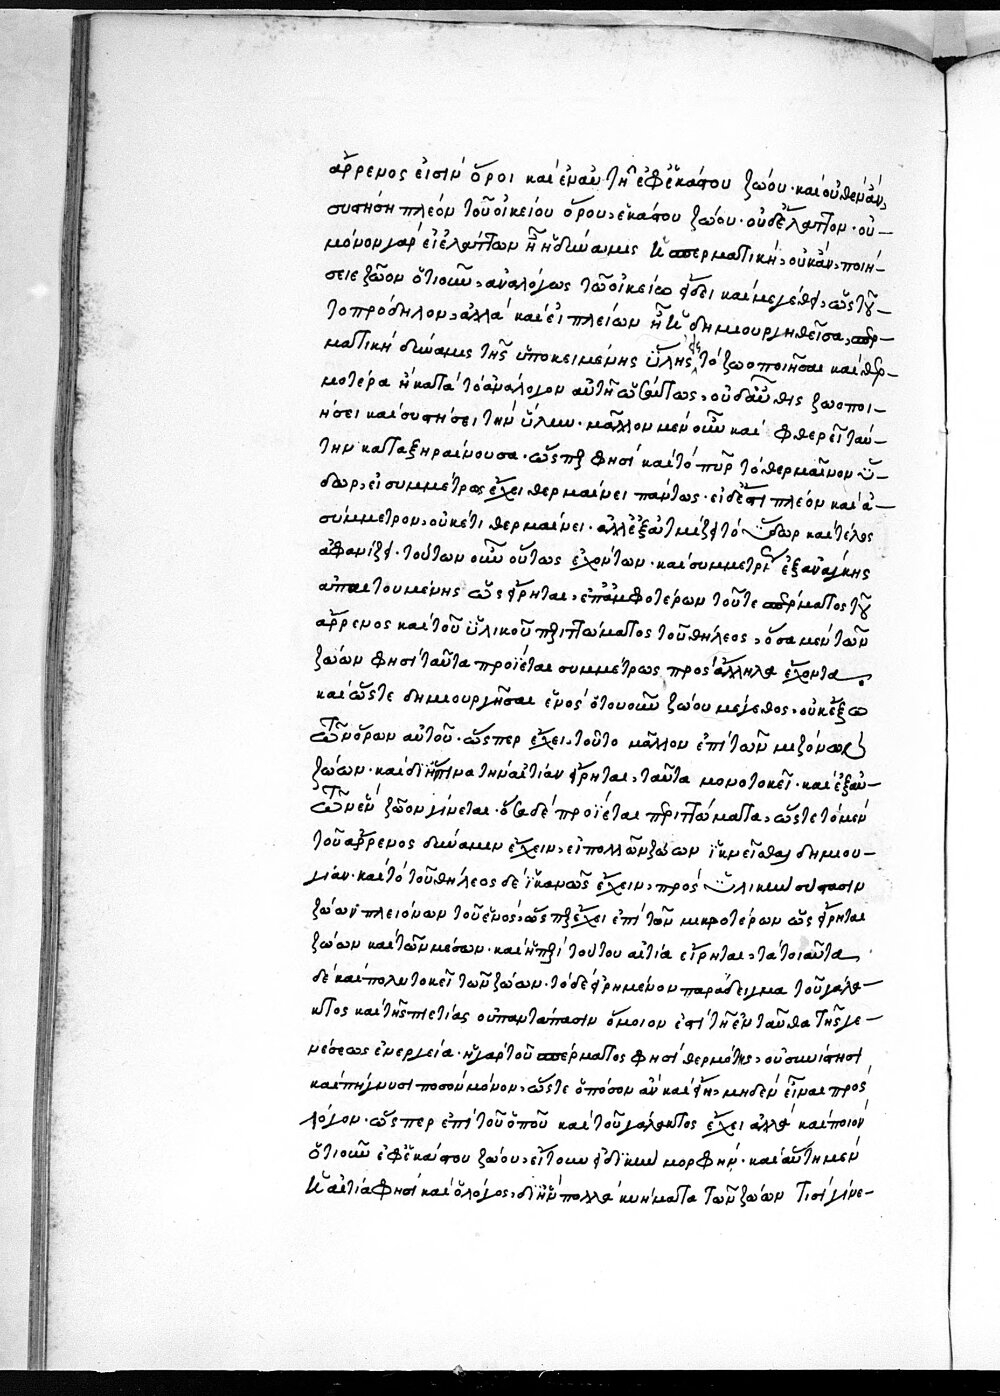 ἄρρενος εἰσὶν ὅροι καὶ ἐν αὐτῆ ἐφ' ἑκάστου ζώου· καὶ οὐθὲν ἂν
συστήση πλέον τοῦ οἰκείου ὅρου ἑκάστου ζώου· οὐδ' ἔλαττον· οὐ-
μόνον γὰρ εἰ ἐλάττων ἦ ἡ δύναμις ἡ σπερματική, οὐκ ἂν ποιή-
σειε ζῶον ὁτιοῦν, ἀναλόγως τῶ οἰκείω εἴδει καὶ μεγέθει, ὥς τοῦ-
το πρόδηλον, ἀλλὰ καὶ εἰ πλείων ἦ ἡ δημιουργηθεῖσα σπερ-
ματικὴ δύναμις τῆς ὑποκειμένης ὕλης εἰς τὸ ζωοποιῆσαι καὶ θερ-
μοτέρα ἢ κατὰ τὸ ἀνάλογον αὐτῆ ὡσαύτως, οὐδ' αὖθις ζωοποι-
ήσει καὶ συστήσει τὴν ὕλην· μᾶλλον μὲν οὖν καὶ φθερεῖ ταύ-
την καταξηραίνουσα· ὥσπερ φησὶ καὶ τὸ πῦρ τὸ θερμαῖνον ὕ-
δωρ, εἰ συμμέτρως ἔχει θερμαίνει πάντως· εἰ δ' ἔστι πλέον καὶ ἀ-
σύμμετρον, οὐκέτι θερμαίνει· ἀλλ' ἐξατμίζει τὸ ὕδωρ καὶ τέλος
ἀφανίζει· τούτων οὖν οὕτως ἐχόντων· καὶ συμμετρίας ἐξ ἀνάγκης
ἀπαιτουμένης ὡς εἴρηται, ἐπ' ἀμφοτέρων τοῦ τε σπέρματος τοῦ
ἄρρενος καὶ τοῦ ὑλικοῦ περιττώματος τοῦ θήλεος, ὅσα μὲν τῶν
ζώων φησὶ ταῦτα προΐεται συμμέτρως πρὸς ἄλληλα ἔχοντα
καὶ ὥστε δημιουργῆσαι ἑνὸς ὁτουοῦν ζώου μέγεθος, οὐκ ἔξω
τῶν ὅρων αὐτοῦ· ὥσπερ ἔχει τοῦτο μᾶλλον ἐπὶ τῶν μειζόνων
ζώων· καὶ δι' ἥντινα τὴν αἰτίαν εἴρηται, ταῦτα μονοτοκεῖ· καὶ ἐξ αὐ-
τῶν ἓν ζῶον γίνεται· ὅσα δὲ προΐεται περιττώματα, ὥστε τὸ μὲν
τοῦ ἄρρενος δύναμιν ἔχειν, εἰ πολλῶν ζώων ἱκνεῖσθαι δημιου-
γίαν· καὶ τὸ τοῦ θήλεος δὲ ἱκανῶς ἔχειν, πρὸς ὑλικὴν σύστασιν
ζώων πλειόνων τοῦ ἑνός, ὥσπερ ἔχει ἐπὶ τῶν μικροτέρων ὡς εἴρηται
ζώων καὶ τῶν μέσων· καὶ ἡ περὶ τούτου αἰτία εἴρηται, τὰ τοιαῦτα
δὲ καὶ πολυτοκεῖ τῶν ζώων· τὸ δὲ εἰρημένον παράδειγμα τοῦ γάλα-
κτος καὶ τῆς πιετίας οὐ παντάπασιν ὅμοιον ἐπὶ τῆ ἐνταῦθα τῆς γε-
νέσεως ἐνεργεία· ἡ γὰρ τοῦ σπέρματος φησὶ θερμότης, οὐ συνίστησι
καὶ πήγνυσι ποσὸν μόνον, ὥστε ὁπόσον ἂν καὶ εἴη, μηδὲν εἶναι πρὸς
λόγον· ὥσπερ ἐπὶ τοῦ ὀποῦ καὶ τοῦ γάλακτος ἔχει ἀλλὰ καὶ ποιὸν
ὁτιοῦν ἐφ' ἑκάστου ζώου, εἴτουν εἰδικὴν μορφήν· καὶ αὕτη μὲν
ἡ αἰτία φησὶ καὶ ὁ λόγος, δι' ἣν πολλὰ κυήματα τῶν ζώων τισὶ γίνε-